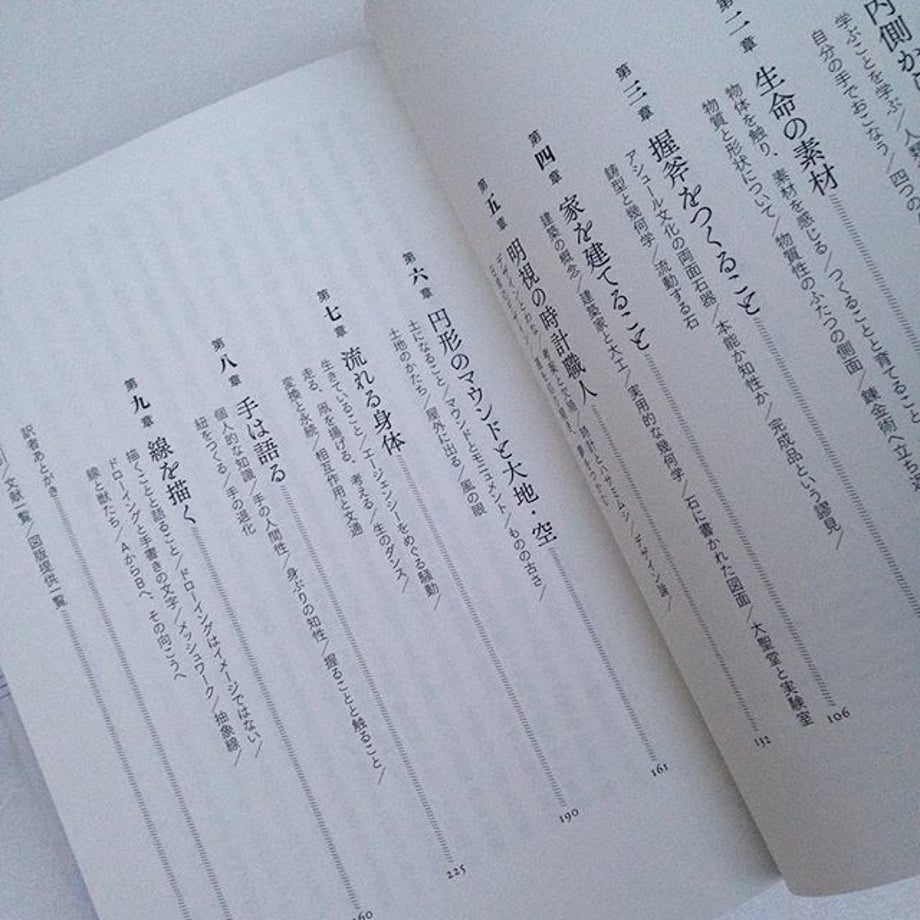 内側か
学ぶことを学ぶ／人類
自分の手でおこなう／四つの
第二章 生命の素材
物体を触り、素材を感じる／つくることと育てること
物質と形状について／物質性のふたつの側面／錬金術へ立ち返
第三章 握斧をつくること
アシュール文化の両面石器／本能か知性か／完成品という謬見／
鋳型と幾何学／流動する石
第四章 家を建てること 106
建築の概念／建築家と大工／実用的な幾何学／石に書かれた図面／大聖堂と実験室
第五章 明視の時計職人 132
デザインとわな／時計とハサミムシ／デザイン論／
第六章 円形のマウンドと大地・空 161
土になること／マウンドとモニュメント／ものの古さ／
土地のかたち／屋外に出る／風の眼
第七章 流れる身体 190
生きていること／エージェンシーをめぐる騒動／
走る、凧を揚げる、考える／生のダンス／
変換と永続／相互作用と文通
第八章 手は語る 225
個人的な知識／手の人間性／身ぶりの知性／握ることと触ること／
紐をつくる／手の退化
第九章 線を描く 260
描くことと語ること／ドローイングはイメージではない／
ドローイングと手書きの文字／メッシュワーク／抽象線／
線と獣たち／AからBへ、その向こうへ
訳者あとがき
文献一覧／図版提供一覧